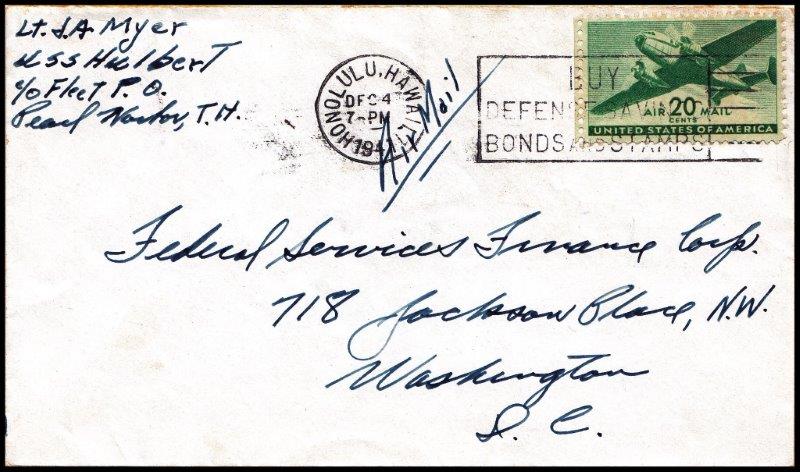 Lt. J.A. Myer
USS Hulbert
c/o Fleet P.O.
Pearl Harbor, T.H.
HONOLULU, HAWAII
DEC 4
7-PM
1941
Air Mail
BUY
DEFENSE SAVINGS
BONDS AND STAMPS
20
CENTS
AIR MAIL
UNITED STATES OF AMERICA
Federal Services Finance Corp.
718 Jackson Place, N.W.
Washington
D. C.